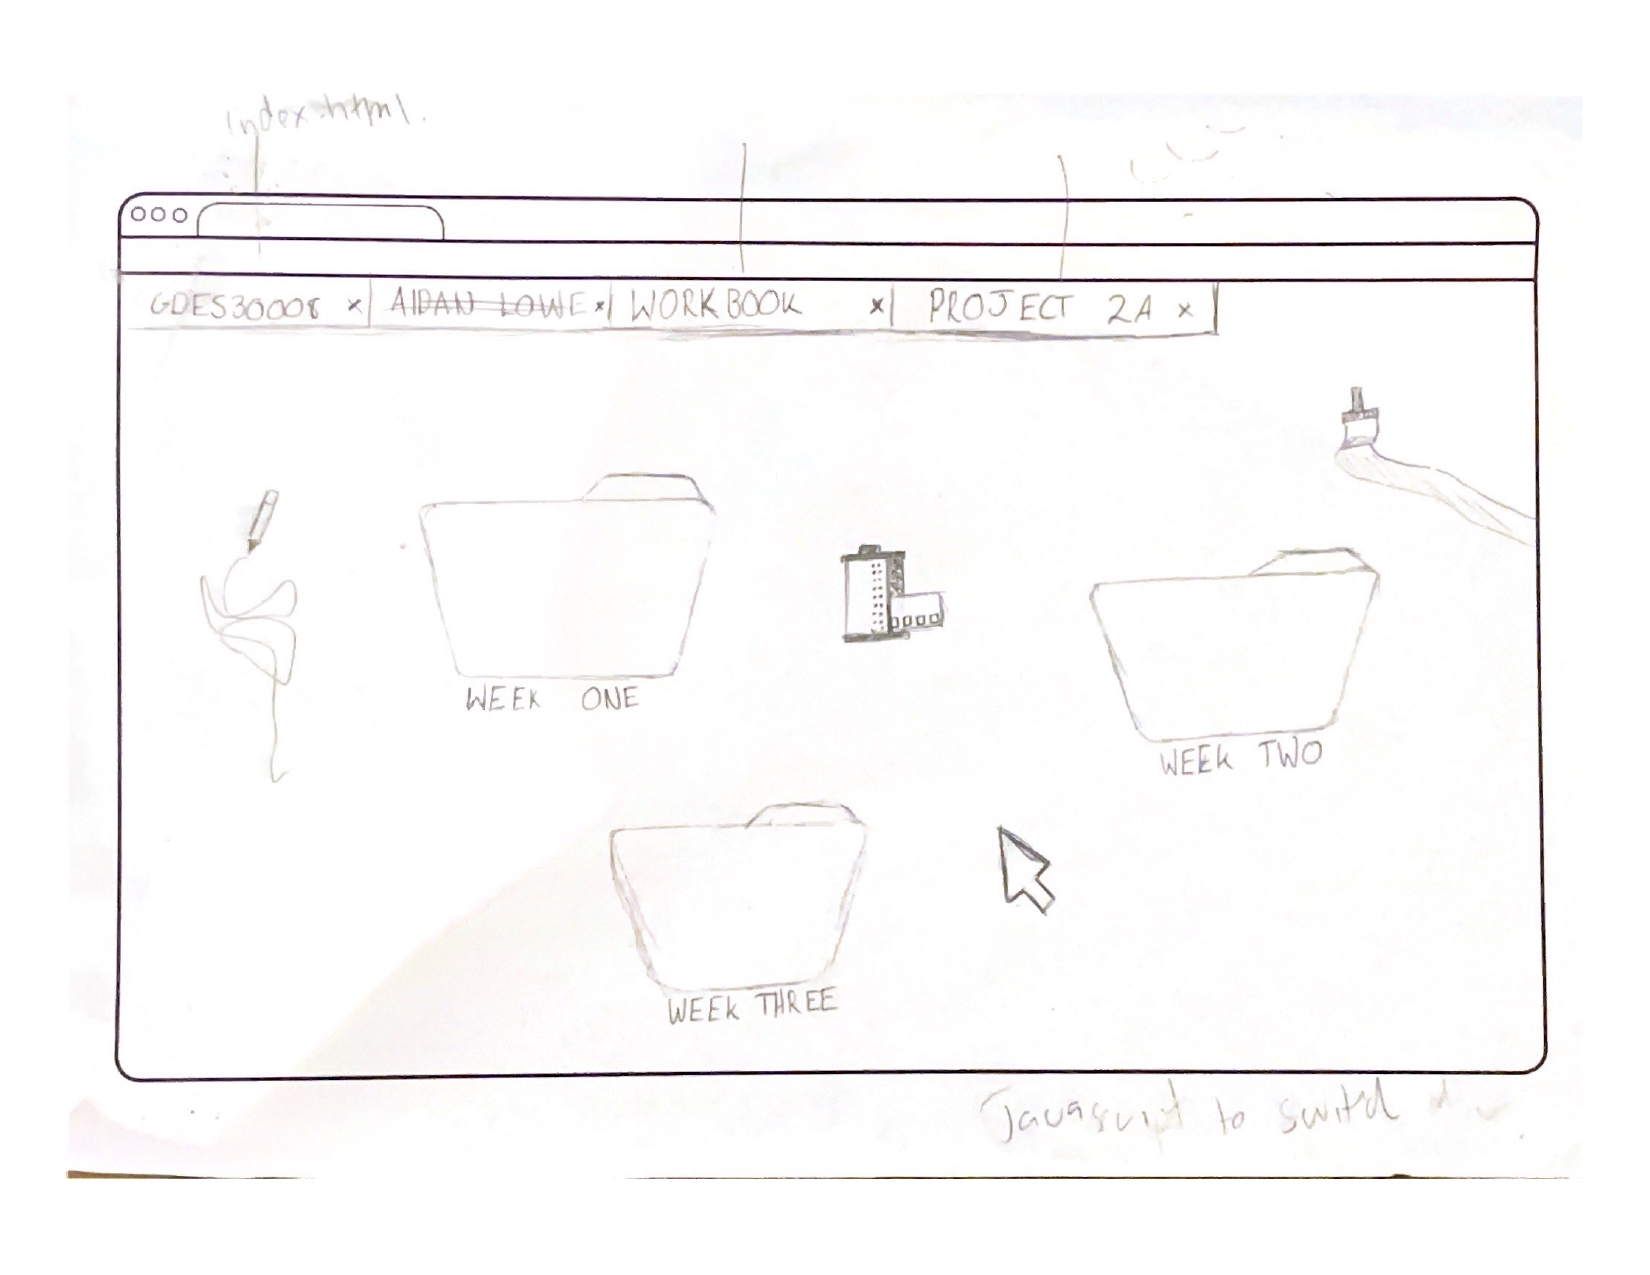 index.html.
GDES30008 x AIDAN LOWE x WORKBOOK x PROJECT 2A x
WEEK ONE
WEEK TWO
WEEK THREE
Javascript to